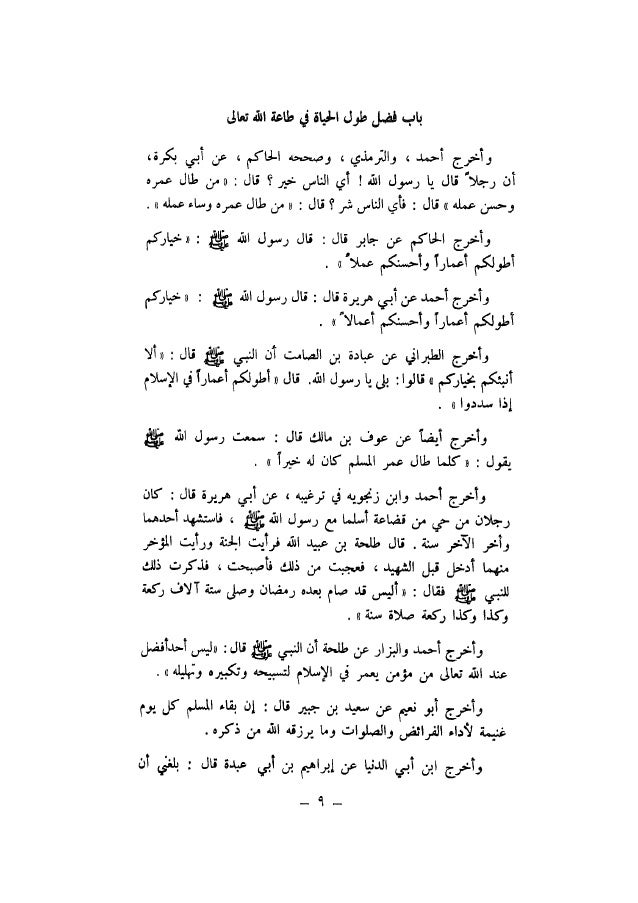 باب فضل طول الحياة في طاعة الله تعالى
وأخرج أحمد ، والترمذي ، وصححه الحاكم ، عن أبي بكرة ،
أن رجلاً قال يا رسول الله ! أي الناس خير ؟ قال : « من طال عمره
وحسن عمله » قال : فأي الناس شر ؟ قال : « من طال عمره وساء عمله » .
وأخرج الحاكم عن جابر قال : قال رسول الله ﷺ : « خياركم
أطولكم أعماراً وأحسنكم عملاً » .
وأخرج أحمد عن أبي هريرة قال : قال رسول الله ﷺ : « خياركم
أطولكم أعماراً وأحسنكم أعمالاً » .
وأخرج الطبراني عن عبادة بن الصامت أن النبي ﷺ قال : « ألا
أنبئكم بخياركم » قالوا : بلى يا رسول الله. قال « أطولكم أعماراً في الإسلام
إذا سددوا » .
وأخرج أيضاً عن عوف بن مالك قال : سمعت رسول الله ﷺ
يقول : « كلما طال عمر المسلم كان له خيراً » .
وأخرج أحمد وابن زنجويه في ترغيبه ، عن أبي هريرة قال : كان
رجلان من حي من قضاعة أسلما مع رسول الله ﷺ ، فاستشهد أحدهما
وأخر الآخر سنة . قال طلحة بن عبيد الله فرأيت الجنة ورأيت المؤخر
منهما أدخل قبل الشهيد ، فعجبت من ذلك فأصبحت ، فذكرت ذلك
للنبي ﷺ فقال : « أليس قد صام بعده رمضان وصلى ستة آلاف ركعة
وكذا وكذا ركعة صلاة سنة » .
وأخرج أحمد والبزار عن طلحة أن النبي ﷺ قال : « ليس أحد أفضل
عند الله تعالى من مؤمن يعمر في الإسلام لتسبيحه وتكبيره وتهليله » .
وأخرج أبو نعيم عن سعيد بن جبير قال : إن بقاء المسلم كل يوم
غنيمة لأداء الفرائض والصلوات وما يرزقه الله من ذكره .
وأخرج ابن أبي الدنيا عن إبراهيم بن أبي عبدة قال : بلغني أن
– ٩ –